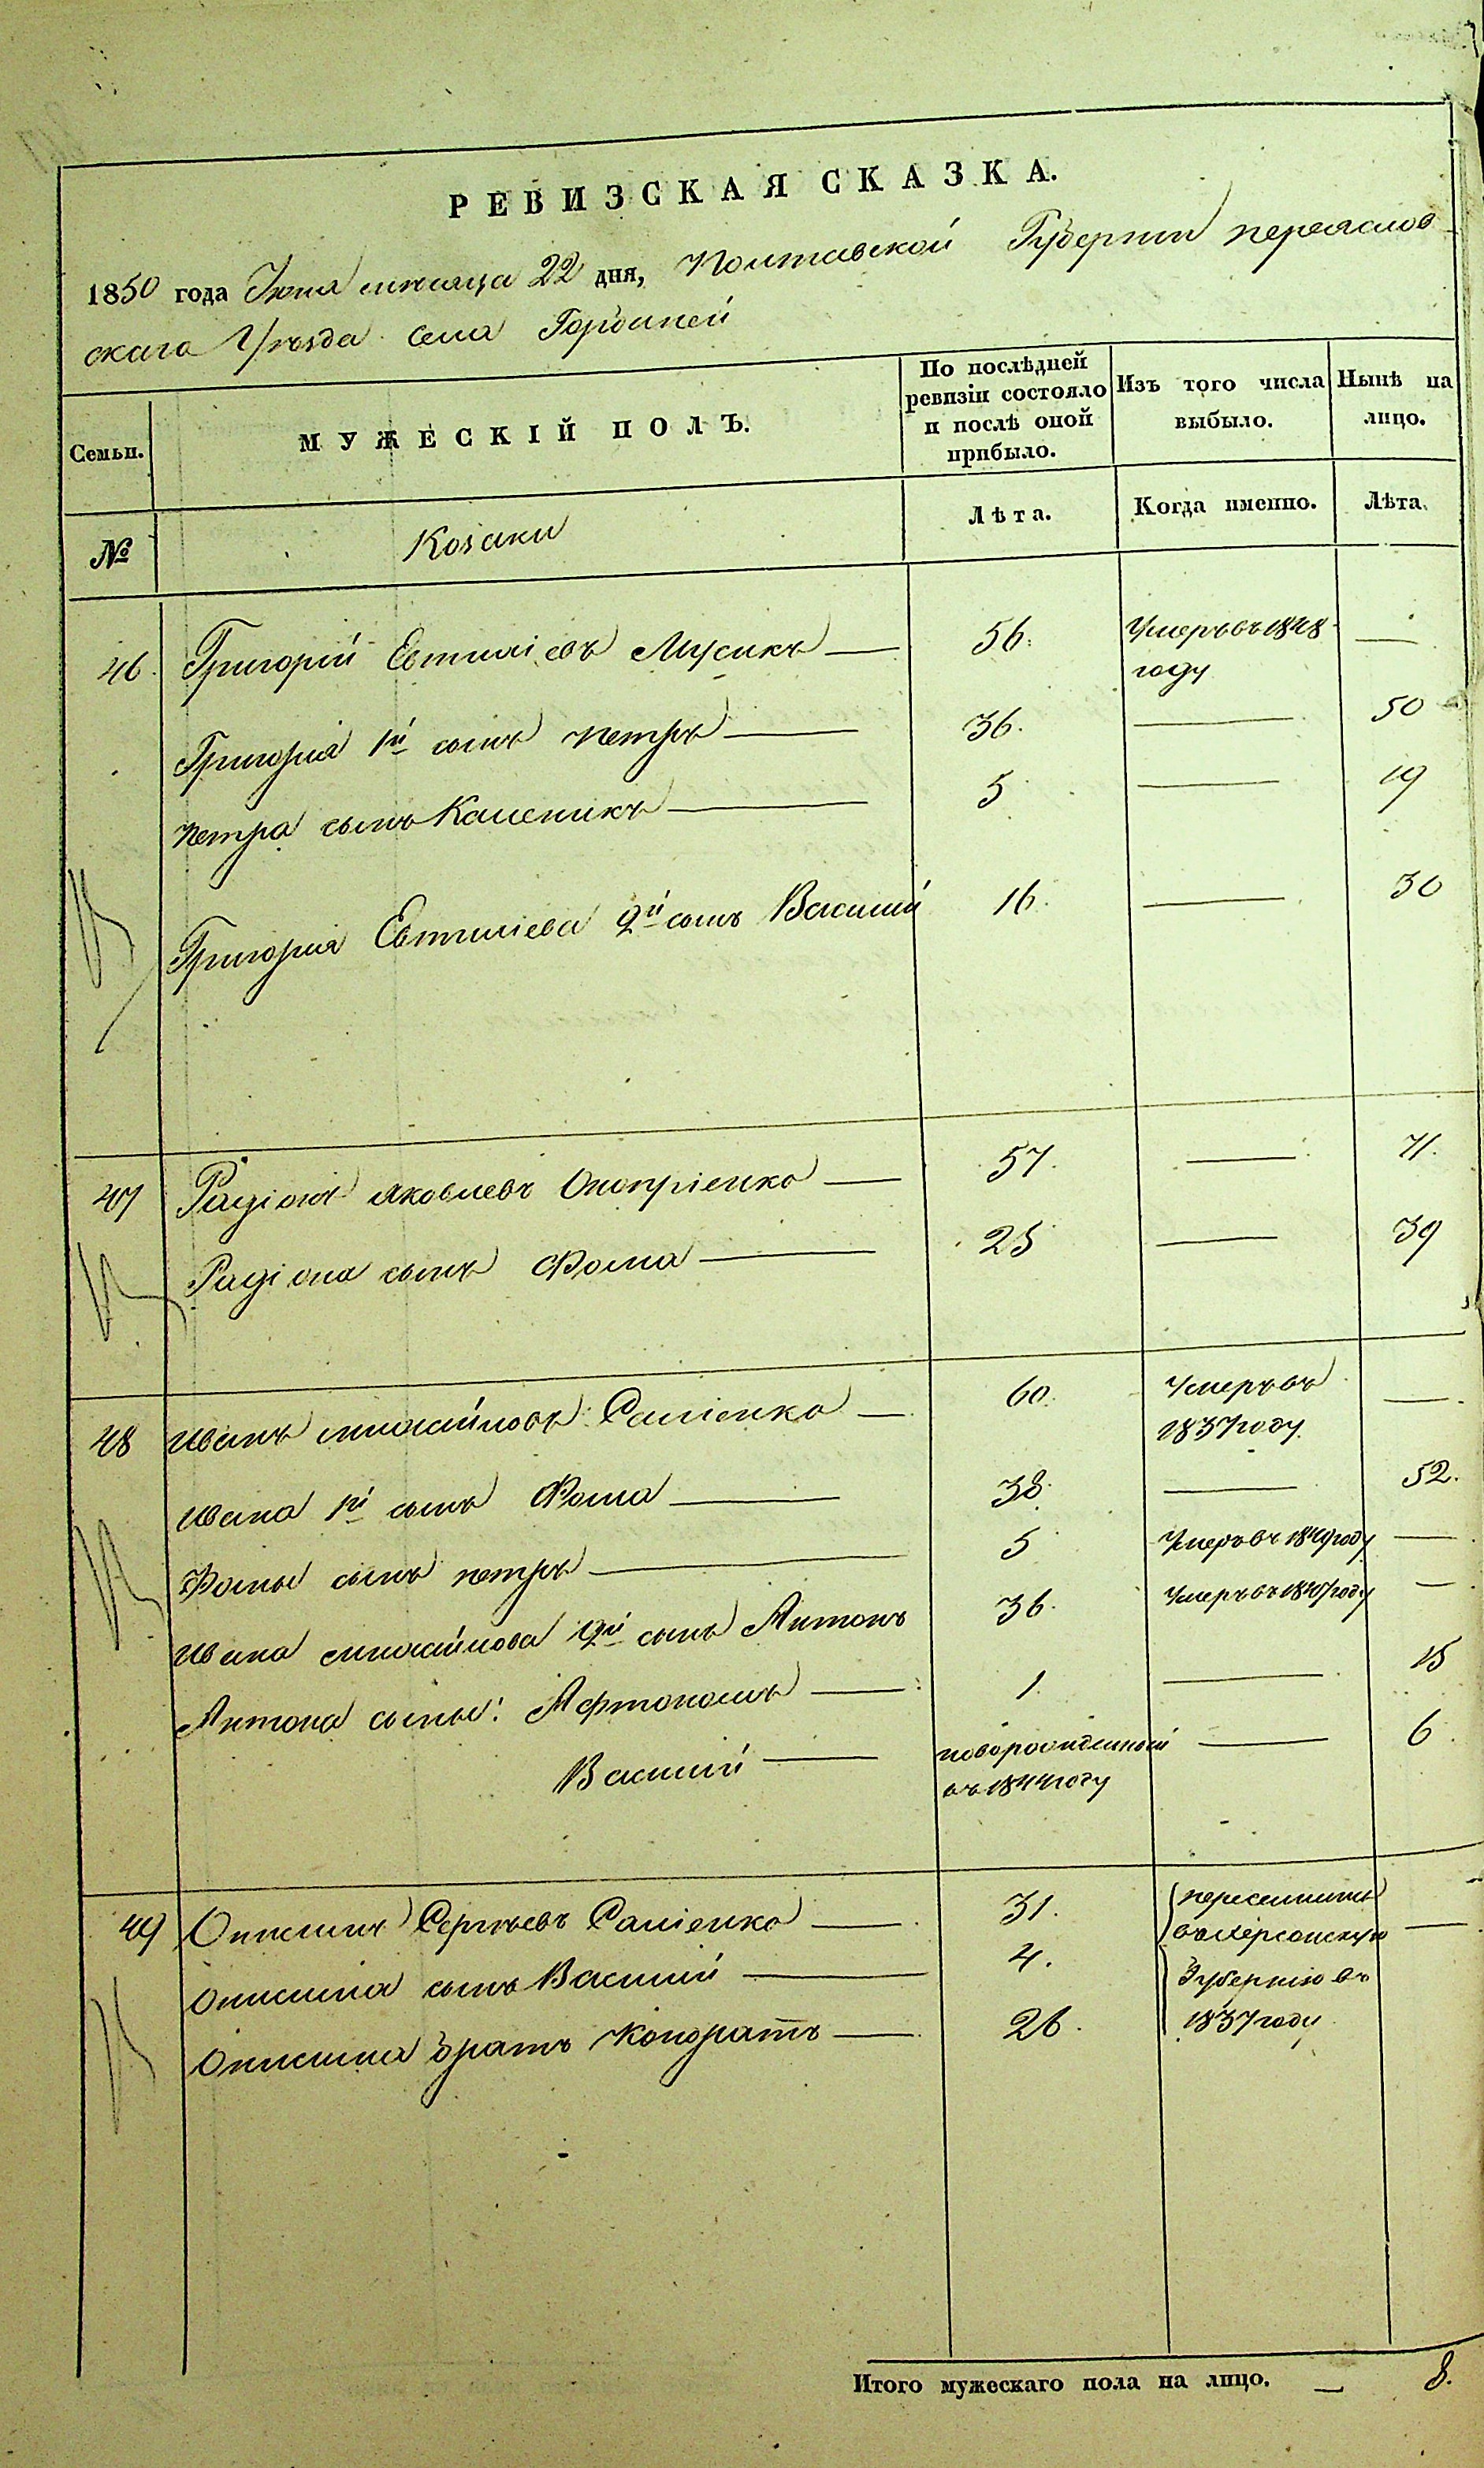 РЕВИЗСКАЯ СКАЗКА.
1850 года Іюня мѣсяца 22 дня, Полтавской Губерніи переяслов
скаго Уѣзда Села
Семьи.
МУЖЕСКІЙ ПОЛЪ.
По послѣдней ревизіи состояло и послѣ оной прибыло.
Изъ того числа выбыло.
Нынѣ на лицо.
№
Козаки
Лѣта.
Когда именно.
Лѣта.
46 Григорій Евтихіевъ Мусикъ — 56. Умеръ въ 1848 —
году
Григорія 1й сынъ петръ — 36. — 50
петра сынъ Каленикъ — 5 — 19
Григорія Евтихіева 2й сынъ Василій 16. — 30
47 Радіонъ яковлевъ Оноприенко — 57. — 71.
Радіона сынъ Фома — 25 — 39
48 иванъ михайловъ — 60. Умеръ въ —
1837 году.
ивана 1й сынъ Фома — 38. — 52.
Фомы сынъ петръ — 5 Умеръ въ 1849 году —
ивана михайлова 2й сынъ Антонъ 36. Умеръ въ 1847 году —
Антона сыны: Афтономъ — 1. — 15
Василий — новорожденный — 6.
въ 1844 году
49 Онисимъ Сергѣевъ — 31. переселились
въ Херсонскую —
Онисима сынъ Василий — 4. Губернію въ
Онисима братъ Кондратъ — 26. 1837 году.
Итого мужескаго пола на лицо. — 8.